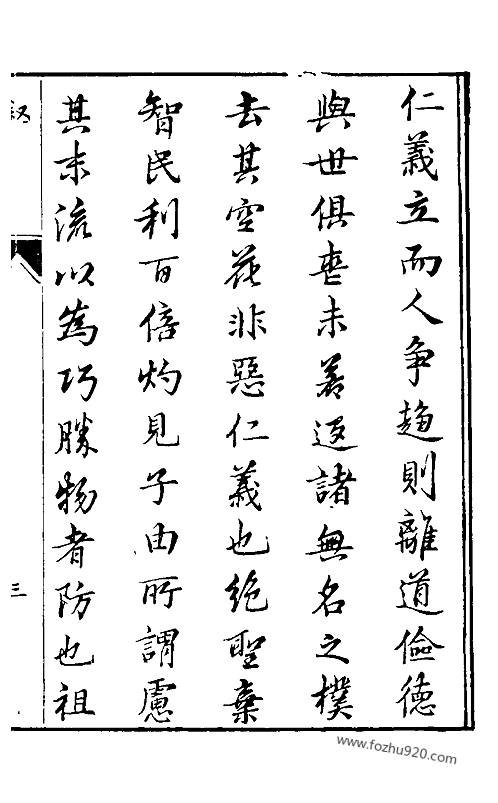 仁義立而人争趨則離道儉德
與世俱喪未若返諸無名之樸
去其空花非惡仁義也絶聖棄
智民利百倍灼見子由所謂慮
其末流以為巧勝物者防也祖
叙
三
www.fozhu920.com